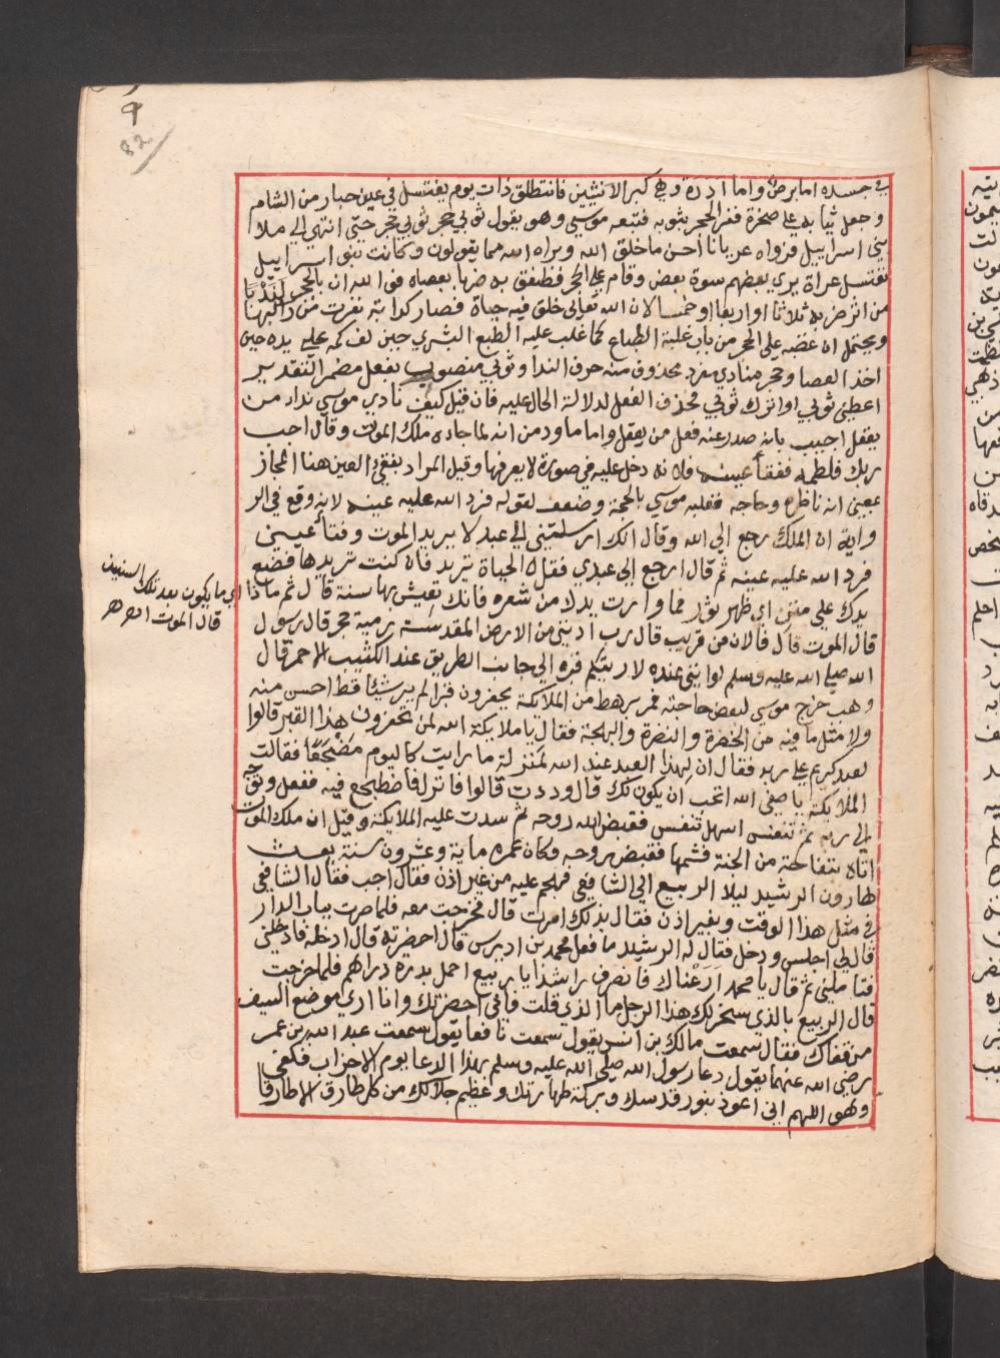 ٩
82
في جسده اما برص واما ادرة وهي كبر الانثيين فانتطلق ذات يوم يغتسل في عين حبار من الشام
وجعل ثيابه على صخرة ففر الحجر بثوبه فتبعه موسى وهو يقول ثوبي حجر ثوبي حجر حتى انتهى الى ملا
بني اسراييل فرواه عريانا احسن ما خلق الله وبراه الله مما يقولون وكانت بنو اسراييل
تغتسل عراة يري بعضهم سوة بعض وقام على الحجر فطفق به ضربا بعصاه فوالله ان بالحجر لندبا
من اثر ضربه ثلاثا او اربعا او خمسا لان الله تعالى خلق فيه حياة فصار كدابة نفرت من راكبها
ويحتمل ان غضبه على الحجر من باب غلبة الطباع كما غلب عليه الطبع البشري حين لف كمه على يده حين
اخذ العصا وحجر منادي مفرد محذوف منه حرف الندا وثوبي منصوب بفعل مضمر التقدير
اعطني ثوبي او اترك ثوبي فحذف الفعل لدلالة الحال عليه فان قيل كيف نادي موسى نداء من
يعقل اجيب بانه صدر عنه فعل من يعقل واما ما ورد من انه لما جاده ملك الموت وقال اجب
ربك فلطمه ففقأ عينه فلانه دخل عليه في صورة لا يعرفها وقيل المراد بفقئ العين هنا المجاز
بمعنى انه ناظره وحاجه فغلبه موسي بالحجة وضعف لقوله فرد الله عليه عينه لانه وقع في الر
واية ان الملك رجع الى الله وقال انك ارسلتني الى عبد لا يريد الموت وفقأ عيني
فرد الله عليه عينه ثم قال ارجع الى عبدي فقل له الحياة تريد فان كنت تريدها فضع
يدك على متن اي ظهر ثور فما وارت يدك من شعره فانك تعيش بها سنة قال ثم ماذا
اي ما يكون بعد تلك السنين
قال الموت اهـ
قال الموت قال فالان من قريب قال رب ادنني من الارض المقدسة رمية حجر قال رسول
الله صلى الله عليه وسلم لو انني عنده لاريتكم قبره الى جانب الطريق عند الكثيب الاحمر قال
وهب خرج موسي لبعض حاجته فمر برهط من الملائكة يحفرون قبرا لم ير شيئا قط احسن منه
ولا مثل ما فيه من الخضرة والنضرة والبهجة فقال يا ملايكة الله لمن تحفرون هذا القبر قالوا
لعبد كريم على ربه فقال ان لهذا العبد عند الله لمنزلة ما رايت كاليوم مضجعا فقالت
الملائكة يا صفي الله اتحب ان يكون لك قال وددت قالوا فانزل فاضطجع فيه ففعل وتوجه
الى ربه ثم تنفس اسهل تنفس فقبض الله روحه ثم سدت عليه الملايكة وقيل ان ملك الموت
اتاه بتفاحة من الجنة فشمها فقبض روحه وكان عمره ماية وعشرون سنة بعث
هارون الرشيد ليلا الربيع الى الشافعي فهجم عليه من غير اذن فقال اجب فقال الشافعي
في مثل هذا الوقت وبغير اذن فقال بذلك امرت قال فخرجت معه فلما صرت بباب الدار
قال لي اجلس ودخل فقال له الرشيد ما فعل محمد بن ادريس قال احضرته قال ادخله فادخلني
فتاملني ثم قال يا محمد ارعناك فانصرف راشدا يا ربيع احمل بدرة دراهم فلما خرجت
قال الربيع بالذي سخر لك هذا الرجل ما الذي قلت فاني احضرتك وانا اري موضع السيف
من قفاك فقال سمعت مالك بن انس يقول سمعت نافعا يقول سمعت عبد الله بن عمر
رضي الله عنهما يقول دعا رسول الله صلى الله عليه وسلم بهذا الدعا يوم الاحزاب فكفي
وهو اللهم اني اعوذ بنور قدسك وبركة طهارتك وعظيم جلالك من كل طارق الا طارقا